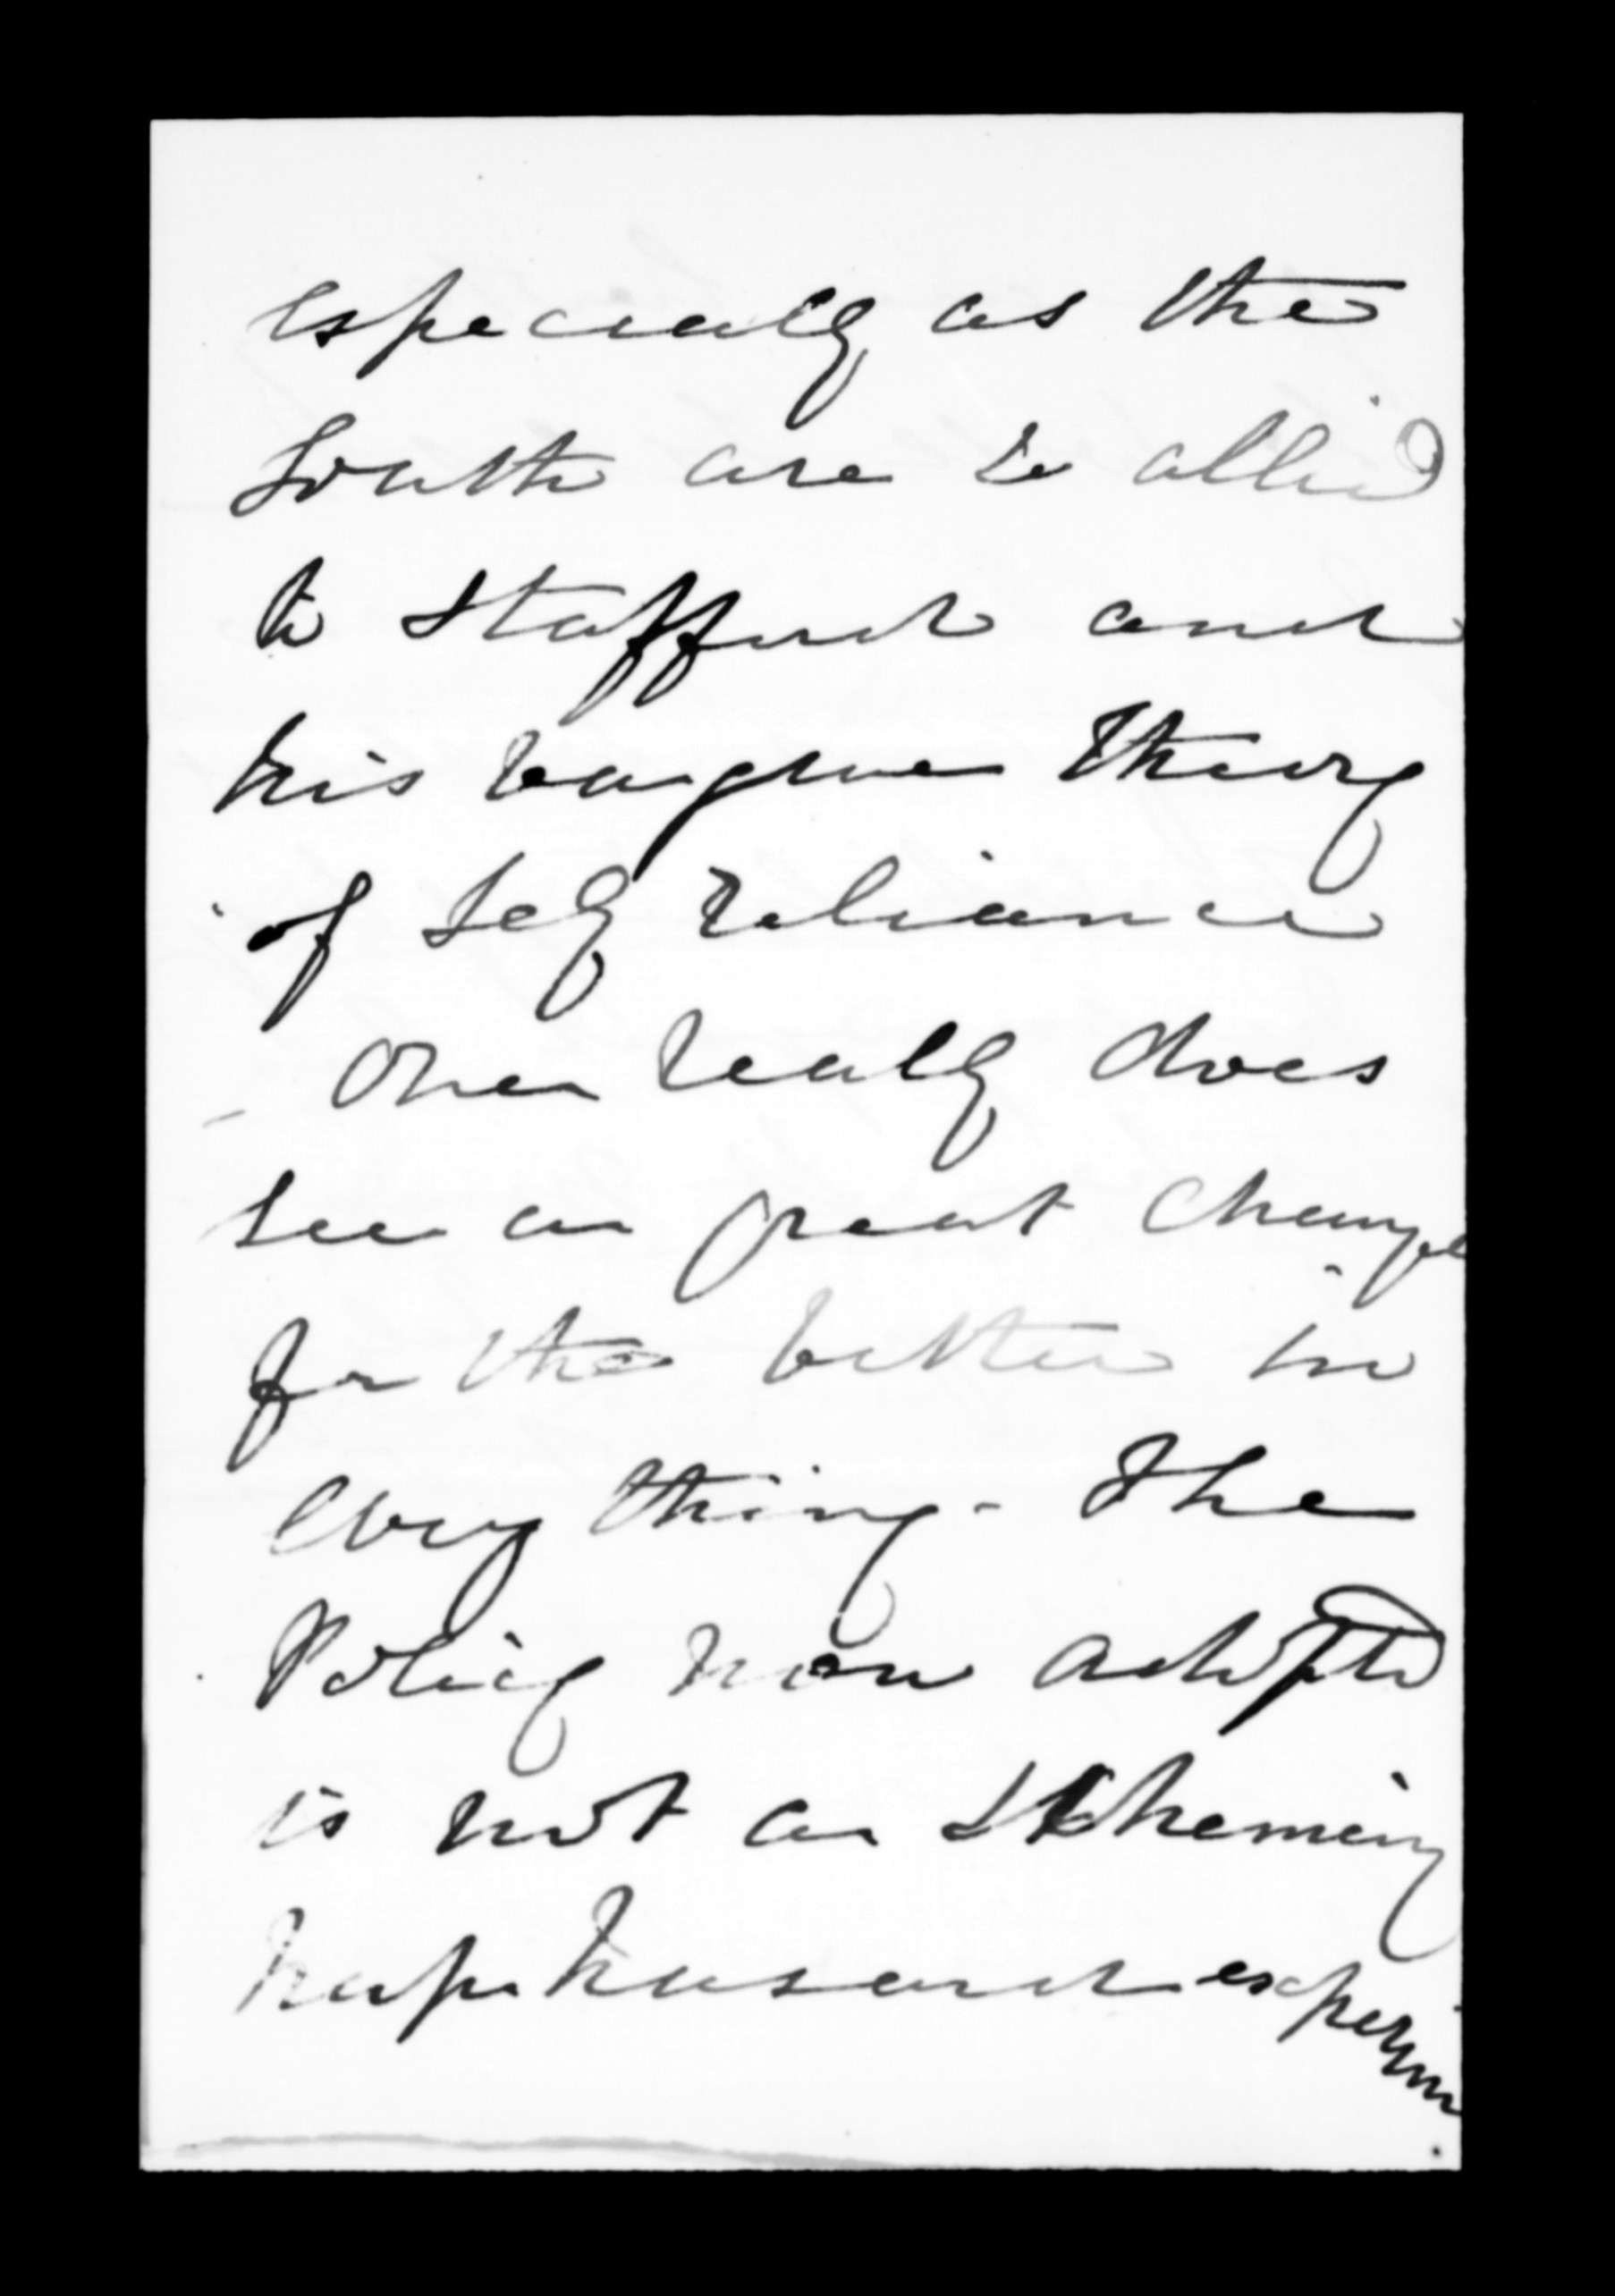 especially as the
South are so allied
to Stafford and
his vague theory
of self reliance
One really does
see a great change
for the better in
every thing - The
Policy now adopted
is not a scheming
hap hazard experim